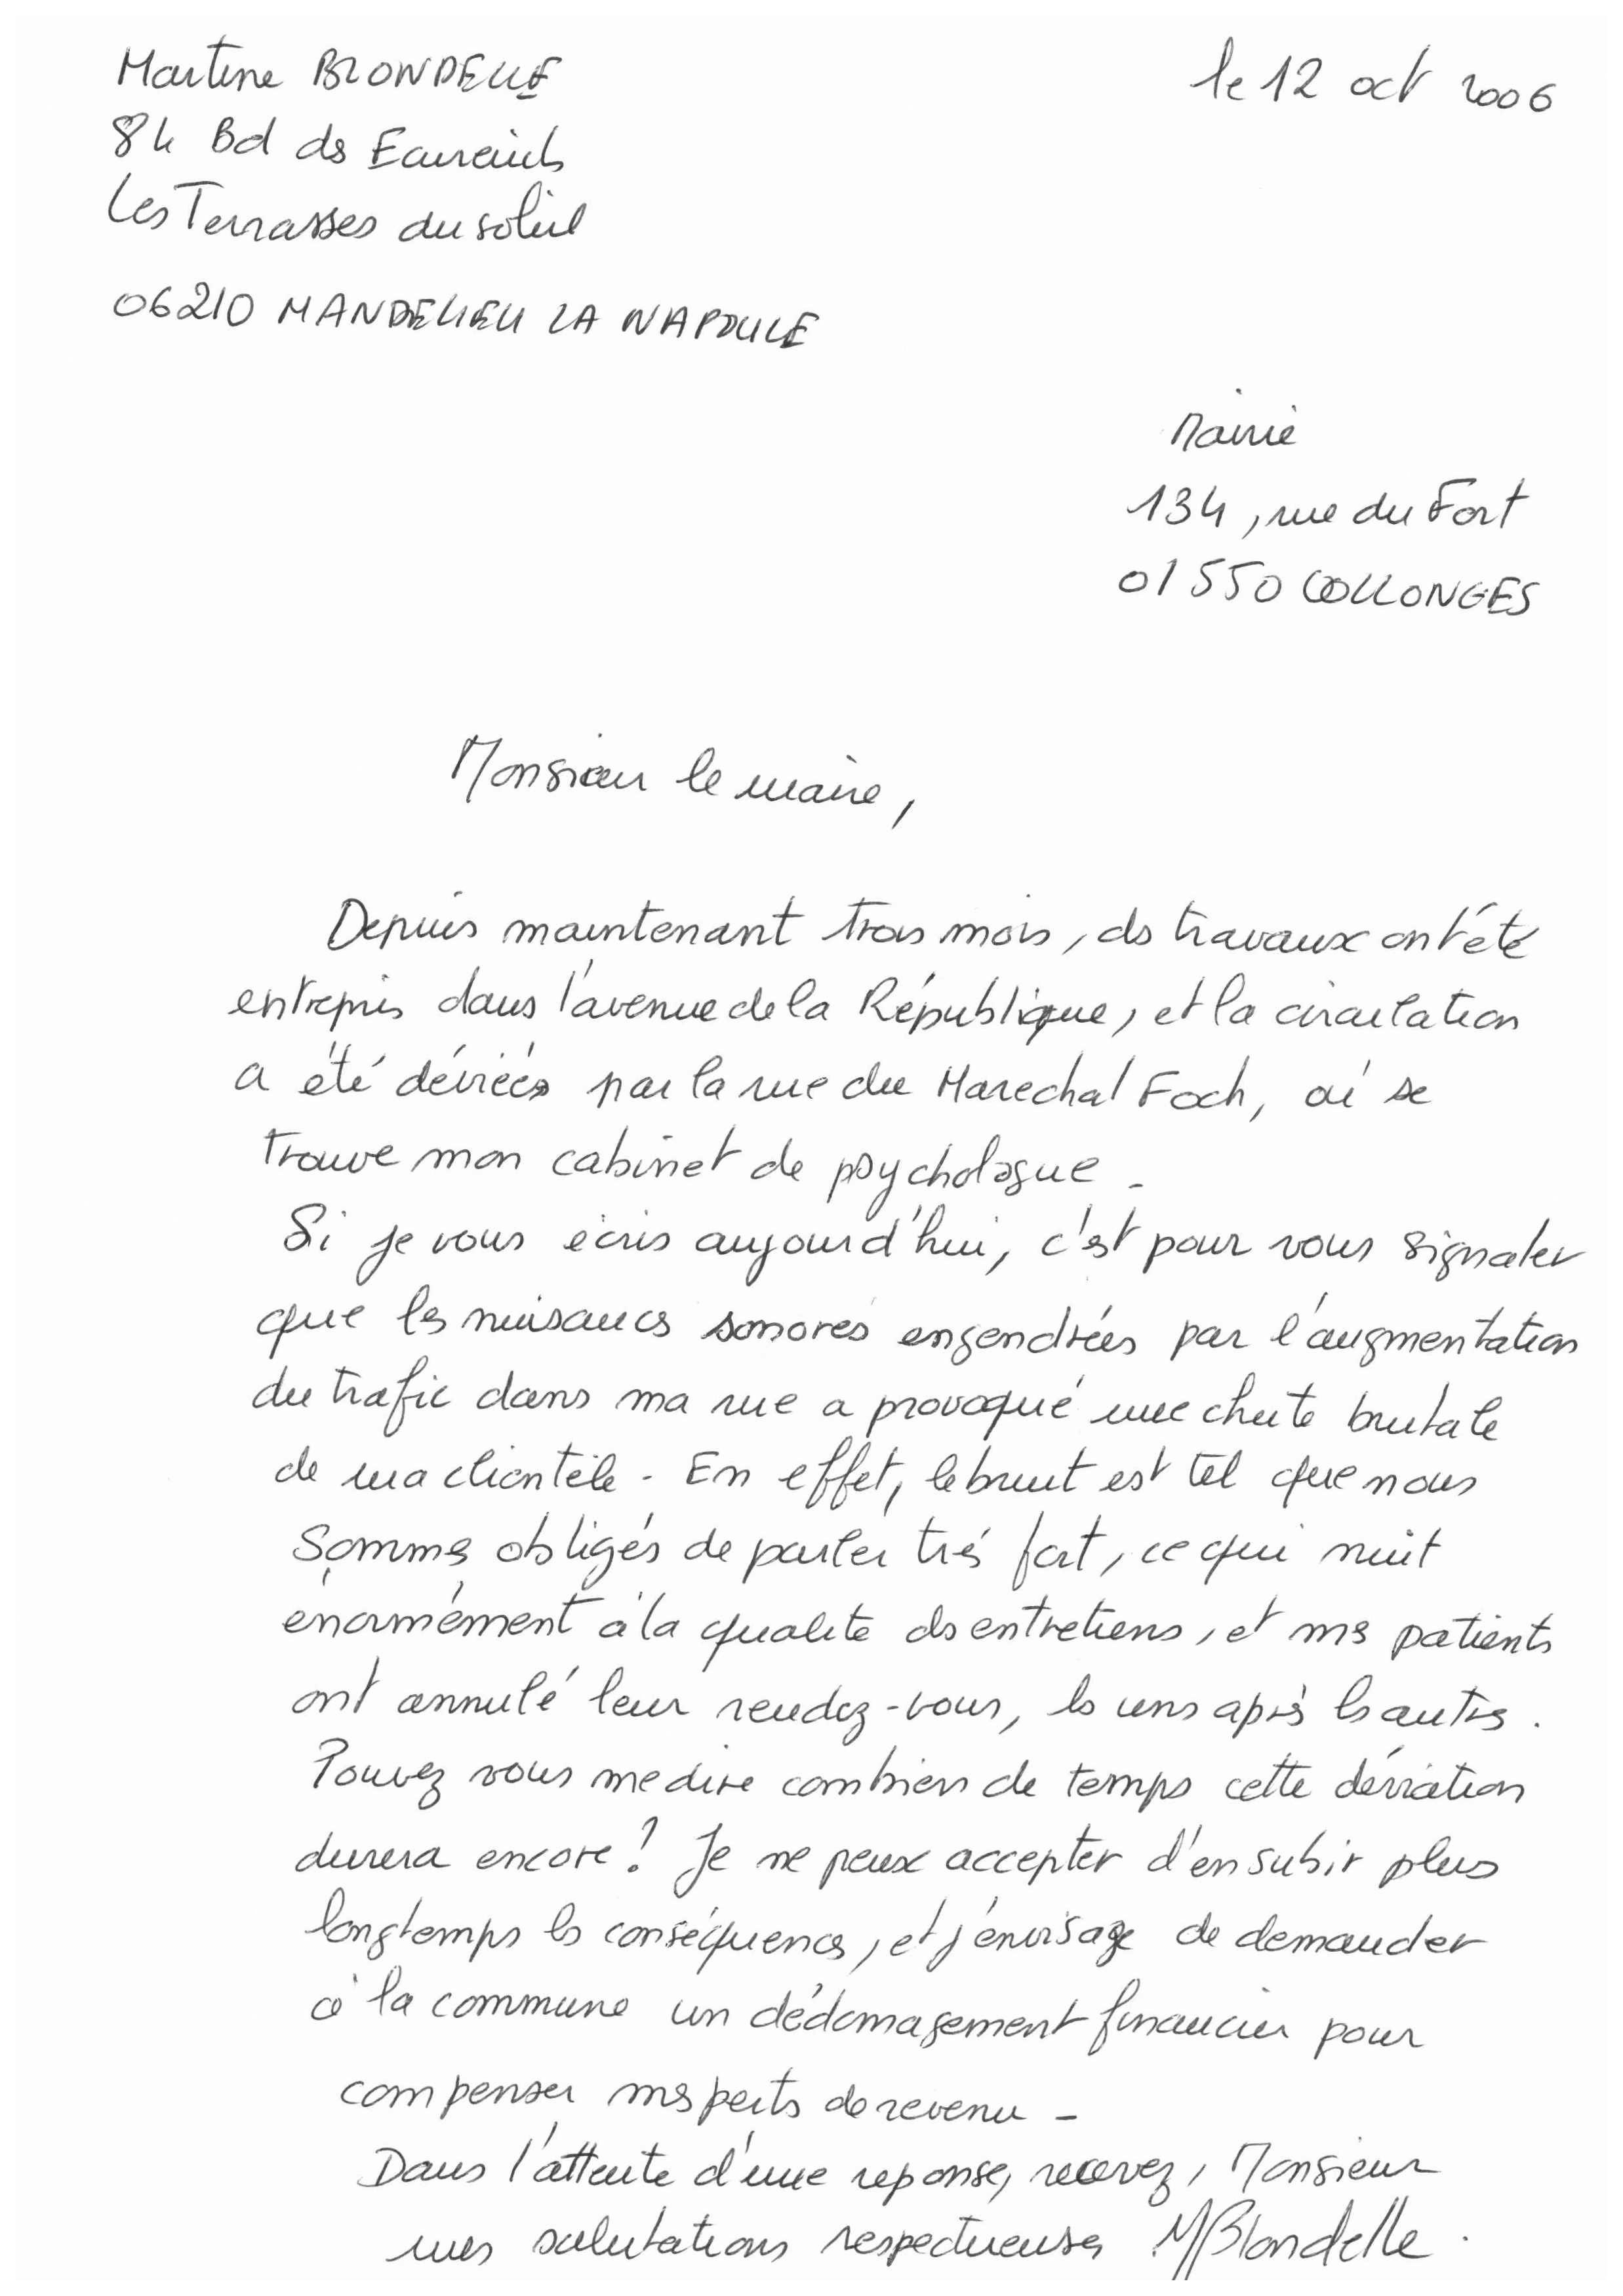 Martine BLONDELLE
le 12 oct 2006
84 Bd des Ecureuils
Les Terrasses du soleil
06210 MANDELIEU LA NAPOULE
Mairie
134, rue du Fort
01550 COLLONGES
Monsieur le maire,
Depuis maintenant trois mois, des travaux ont été
entrepris dans l'avenue de la République, et la circulation
a été déviées par la rue du Marechal Foch, où se
trouve mon cabinet de psychologue -
Si je vous écris aujourd'hui, c'est pour vous signaler
que les nuisances sonores engendrées par l'augmentation
du trafic dans ma rue a provoqué une chute brutale
de ma clientèle - En effet, le bruit est tel que nous
sommes obligés de parler très fort, ce qui nuit
énormément à la qualité des entretiens, et mes patients
ont annulé leur rendez-vous, les uns après les autres.
Pouvez vous me dire combien de temps cette déviation
durera encore ? Je ne peux accepter d'en subir plus
longtemps les conséquences, et j'envisage de demander
à la commune un dédomagement financier pour
compenser mes pertes de revenu -
Dans l'attente d'une reponse, recevez, Monsieur
mes salutations respectueuses MBlondelle.